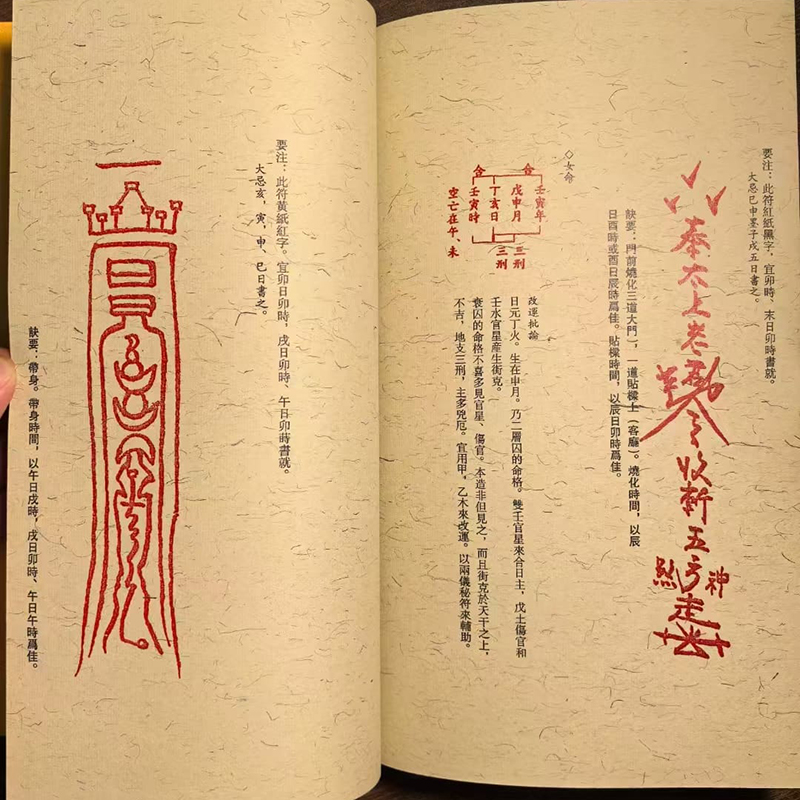 要注：此符紅紙黑字，宜卯時、末日卯時書就。
大忌巳申墨子戌五日書之。
奉太上老君勅令收斬五方
神煞走
訣要：門前燒化三道大門），一道貼樑士（客廳）。燒化時間，以辰
日酉時或酉日辰時爲佳。貼樑時間，以辰日卯時爲佳。
◇女命
合 合
壬寅年
戊申月
丁亥日
壬寅時
三刑
三刑
空亡在午、未
改運批論
日元丁火。生在申月。乃二層囚的命格。雙壬官星來合日主，戊土傷官和
壬水官星産生街克。
衰囚的命格不喜多見官星、傷官。本造非但見之，而且街克於天干之上，
不吉，地支三刑，主多兇厄。宜用甲，乙木來改運。以兩儀秘符來輔助。
要注：此符黄紙紅字。宜卯日卯時，戌日卯時、午日卯蒔書就。
大忌亥，寅，申、巳日書之。
訣要：帶身。帶身時間，以午日戌時，戌日卯時、午日午時爲佳。